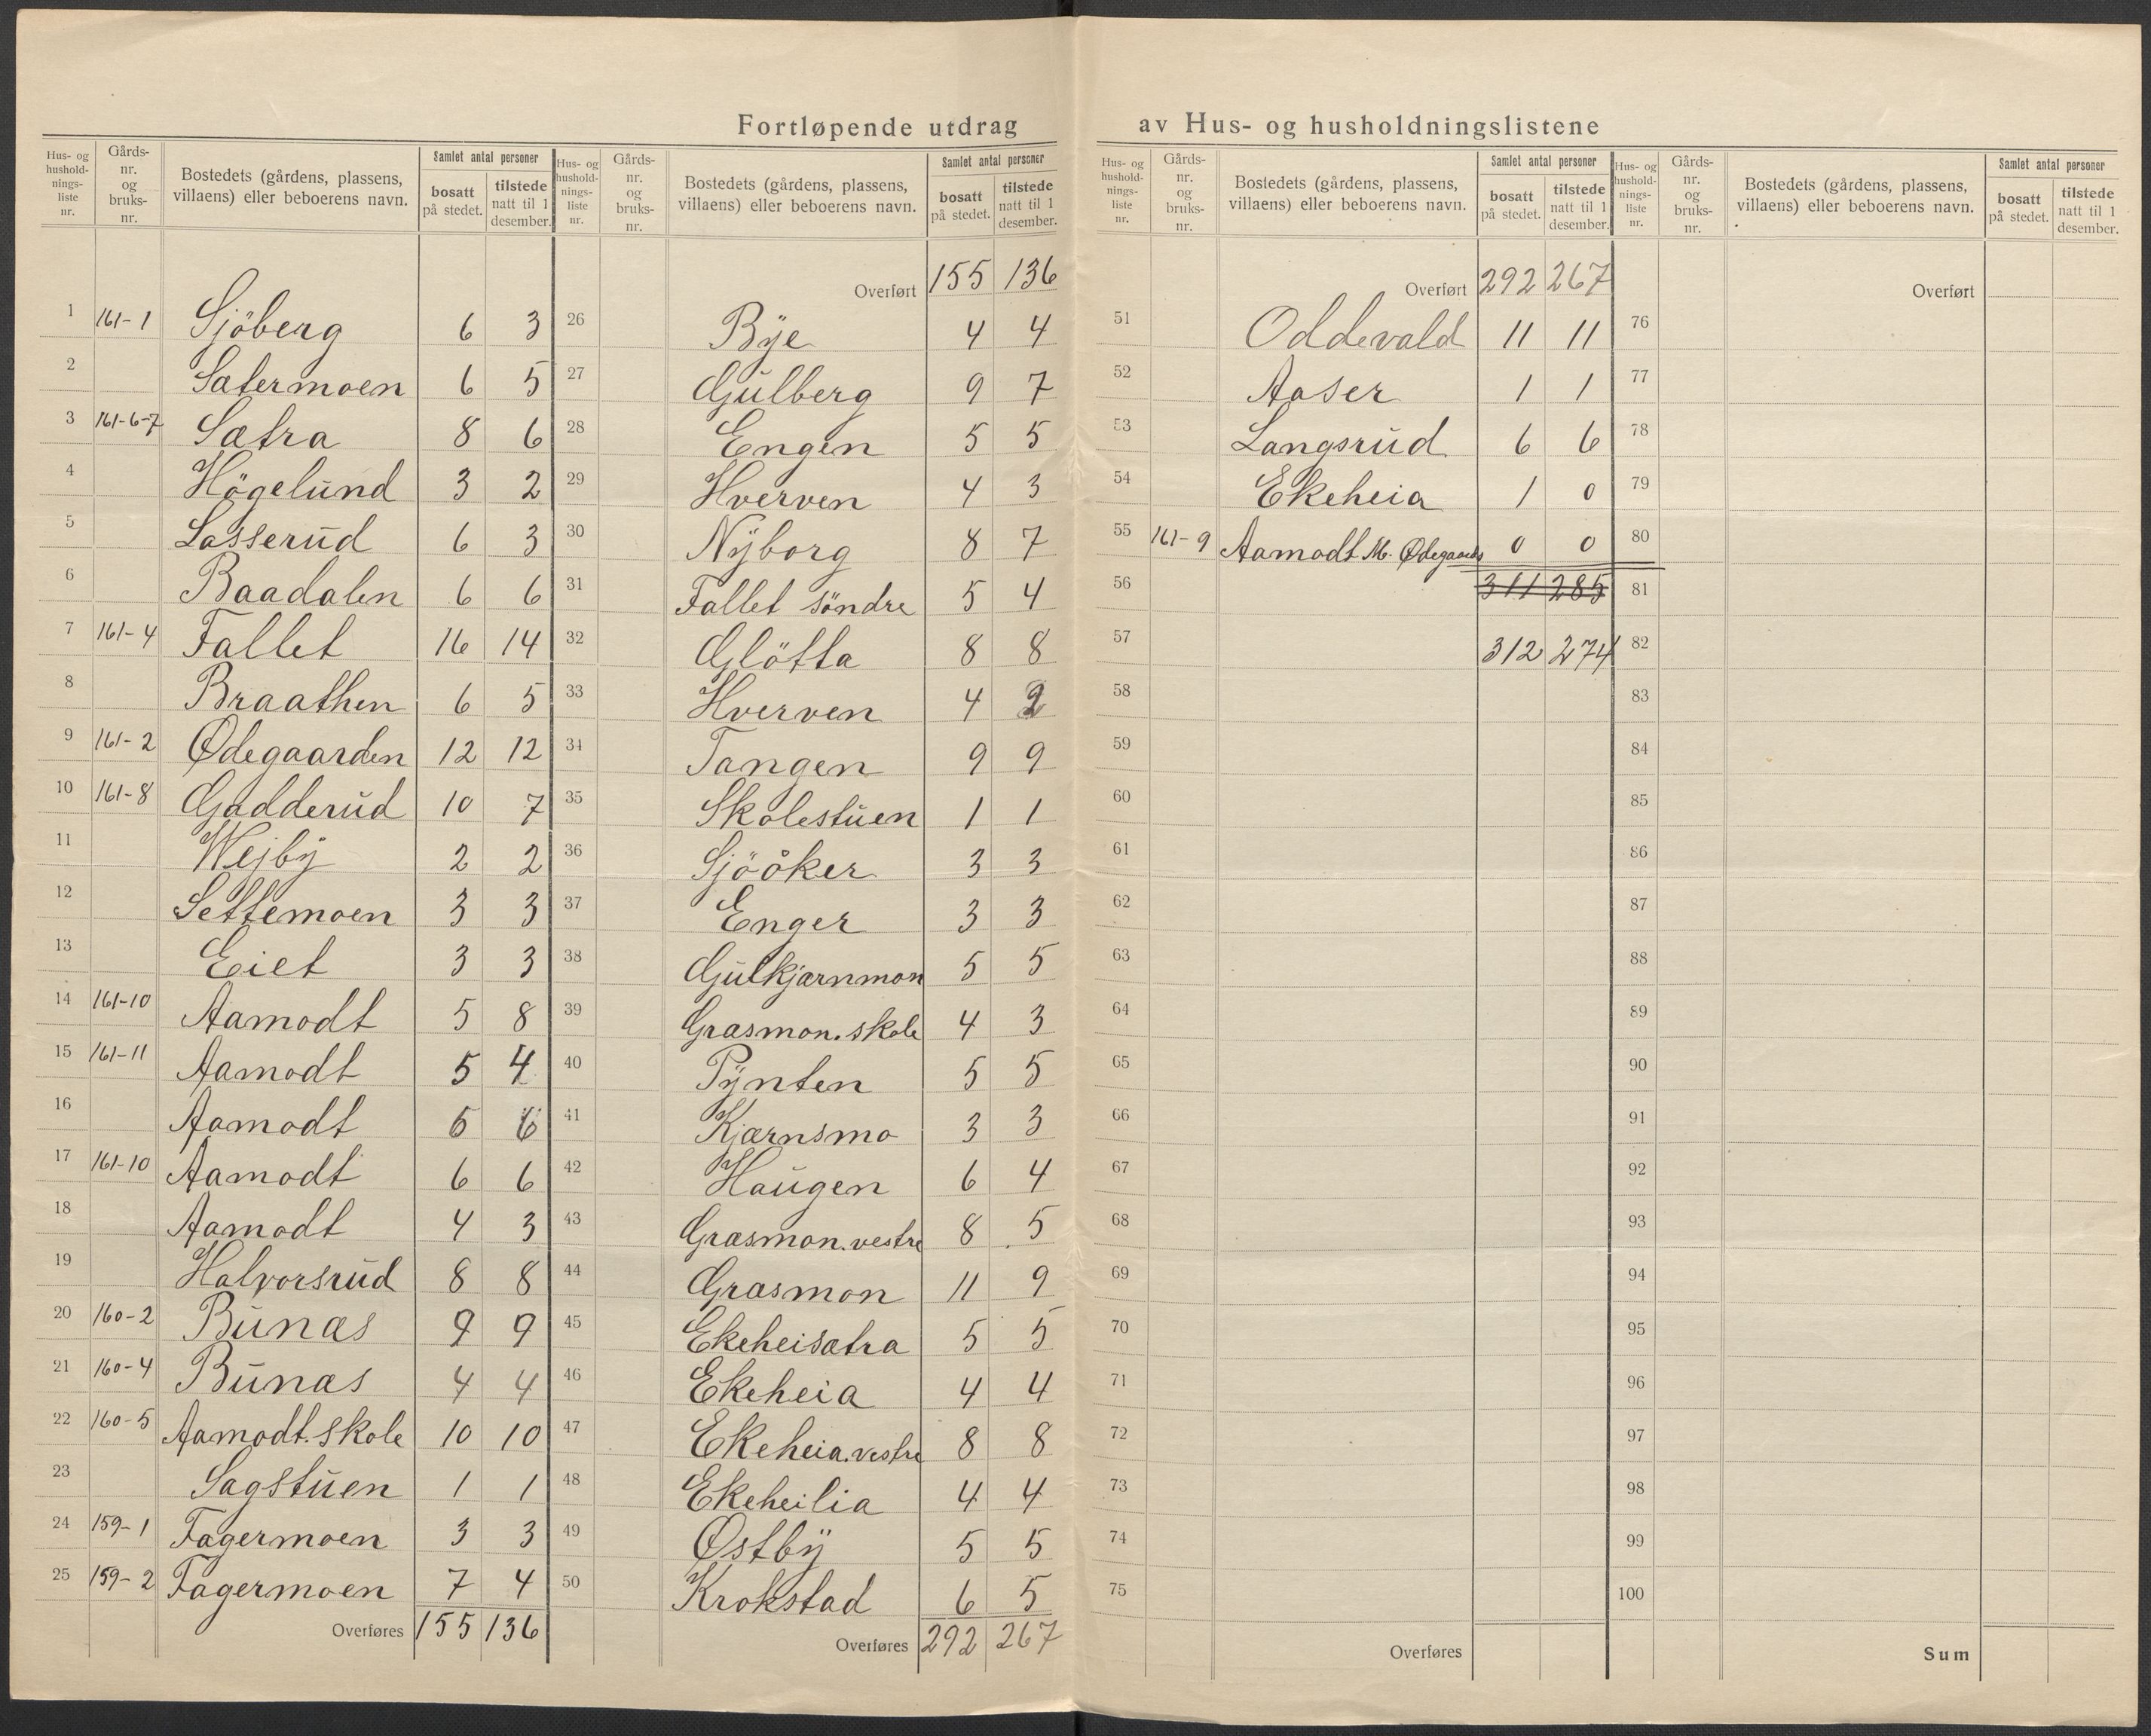 Fortløpende utdrag av Hus- og husholdningslistene
Hus- og hushold-nings-liste nr. | Gårds-nr. og bruks-nr. | Bostedets (gårdens, plassens, villaens) eller beboerens navn. | Samlet antal personer | bosatt på stedet. | tilstede natt til 1 desember.
1 161-1 Sjöberg 6 3
2 Sætermoen 6 5
3 161-6-7 Sætra 8 6
4 Högelund 3 2
5 Lasserud 6 3
6 Baadalen 6 6
7 161-4 Fallet 16 14
8 Braathen 6 5
9 161-2 Ødegaarden 12 12
10 161-8 Gadderud 10 7
11 Wejby 2 2
12 Settemoen 3 3
13 Eiet 3 3
14 161-10 Aamodt 5 8
15 161-11 Aamodt 5 4
16 Aamodt 6 6
17 161-10 Aamodt 6 6
18 Aamodt 4 3
19 Halvorsrud 8 8
20 160-2 Bunæs 9 9
21 160-4 Bunæs 4 4
22 160-5 Aamodt. skole 10 10
23 Sagstuen 1 1
24 159-1 Fagermoen 3 3
25 159-2 Fagermoen 7 4
Overføres 155 136
Hus- og hushold-nings-liste nr. | Gårds-nr. og bruks-nr. | Bostedets (gårdens, plassens, villaens) eller beboerens navn. | Samlet antal personer | bosatt på stedet. | tilstede natt til 1 desember.
Overført 155 136
26 Bye 4 4
27 Gulberg 9 7
28 Engen 5 5
29 Hverven 4 3
30 Nyborg 8 7
31 Fallet söndre 5 4
32 Glötta 8 8
33 Hverven 4 2
34 Tangen 9 9
35 Skolestuen 1 1
36 Sjöåker 3 3
37 Enger 3 3
38 Gulkjærnmon 5 5
39 Græsmon. skole 4 3
40 Pynten 5 5
41 Kjærnsmo 3 3
42 Haugen 6 4
43 Græsmon. vestre 8 5
44 Græsmon 11 9
45 Ekeheisætra 5 5
46 Ekeheia 4 4
47 Ekeheia. vestre 8 8
48 Ekeheilia 4 4
49 Østby 5 5
50 Krokstad 6 5
Overføres 292 267
Hus- og hushold-nings-liste nr. | Gårds-nr. og bruks-nr. | Bostedets (gårdens, plassens, villaens) eller beboerens navn. | Samlet antal personer | bosatt på stedet. | tilstede natt til 1 desember.
Overført 292 267
51 Oddevald 11 11
52 Aaser 1 1
53 Langsrud 6 6
54 Ekeheia 1 0
55 161-9 Aamodt M. Ødegaards 0 0
56 311 285
57 312 274
58
59
60
61
62
63
64
65
66
67
68
69
70
71
72
73
74
75
Overføres
Hus- og hushold-nings-liste nr. | Gårds-nr. og bruks-nr. | Bostedets (gårdens, plassens, villaens) eller beboerens navn. | Samlet antal personer | bosatt på stedet. | tilstede natt til 1 desember.
Overført
76
77
78
79
80
81
82
83
84
85
86
87
88
89
90
91
92
93
94
95
96
97
98
99
100
Sum